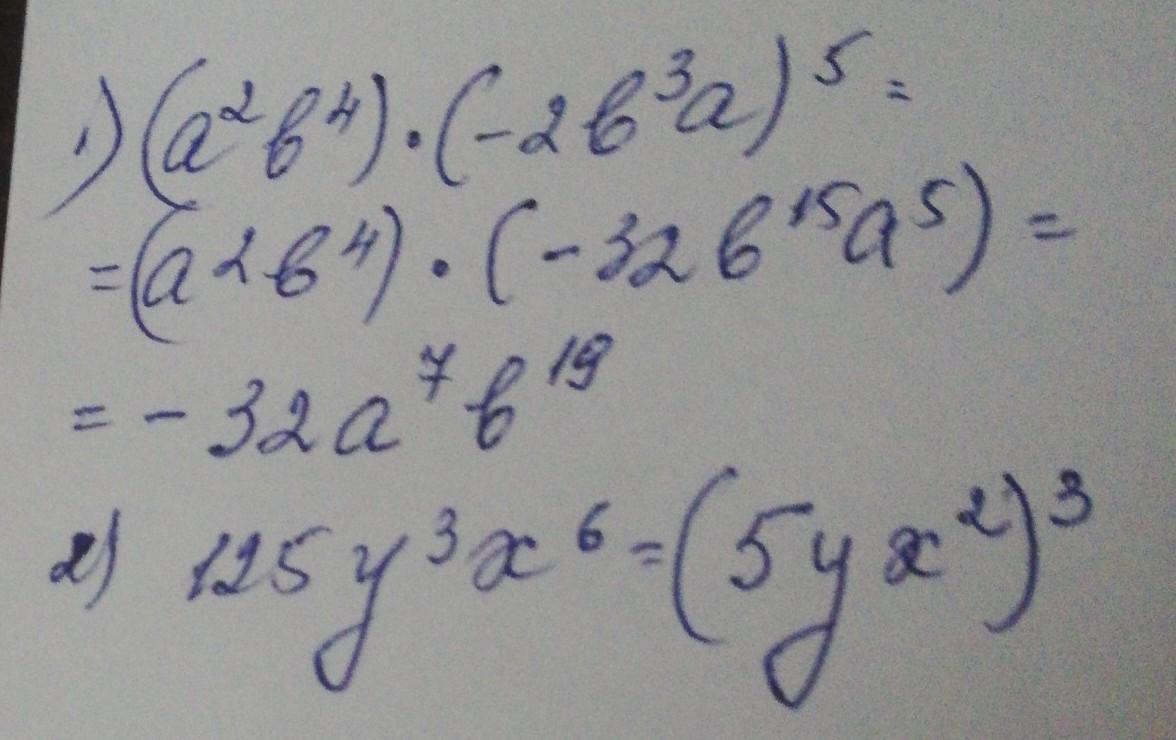 1) (a²b⁴) · (-2b³a)⁵ =
= (a²b⁴) · (-32b¹⁵a⁵) =
= -32a⁷b¹⁹
2) 125y³x⁶ = (5yx²)³